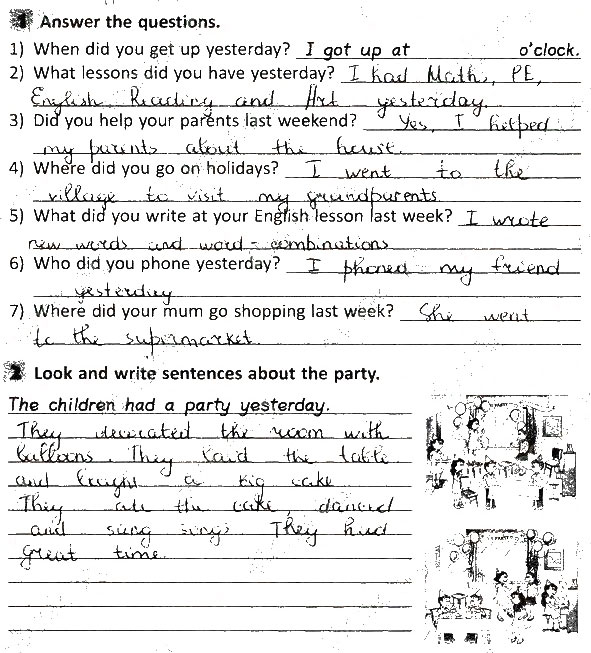 1 Answer the questions.
1) When did you get up yesterday? I got up at o'clock.
2) What lessons did you have yesterday? I had Math, PE,
English, Reading and Art yesterday.
3) Did you help your parents last weekend? Yes, I helped
my parents about the house.
4) Where did you go on holidays? I went to the
village to visit my grandparents
5) What did you write at your English lesson last week? I wrote
new words and word-combinations
6) Who did you phone yesterday? I phoned my friend
yesterday
7) Where did your mum go shopping last week? She went
to the supermarket.
2 Look and write sentences about the party.
The children had a party yesterday.
They decorated the room with
balloons. They laid the table
and bought a big cake
They ate the cake, danced
and sung songs They had
great time.